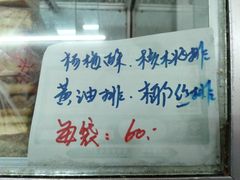 酥.核桃排
黄油排.椰丝排
每袋:60.